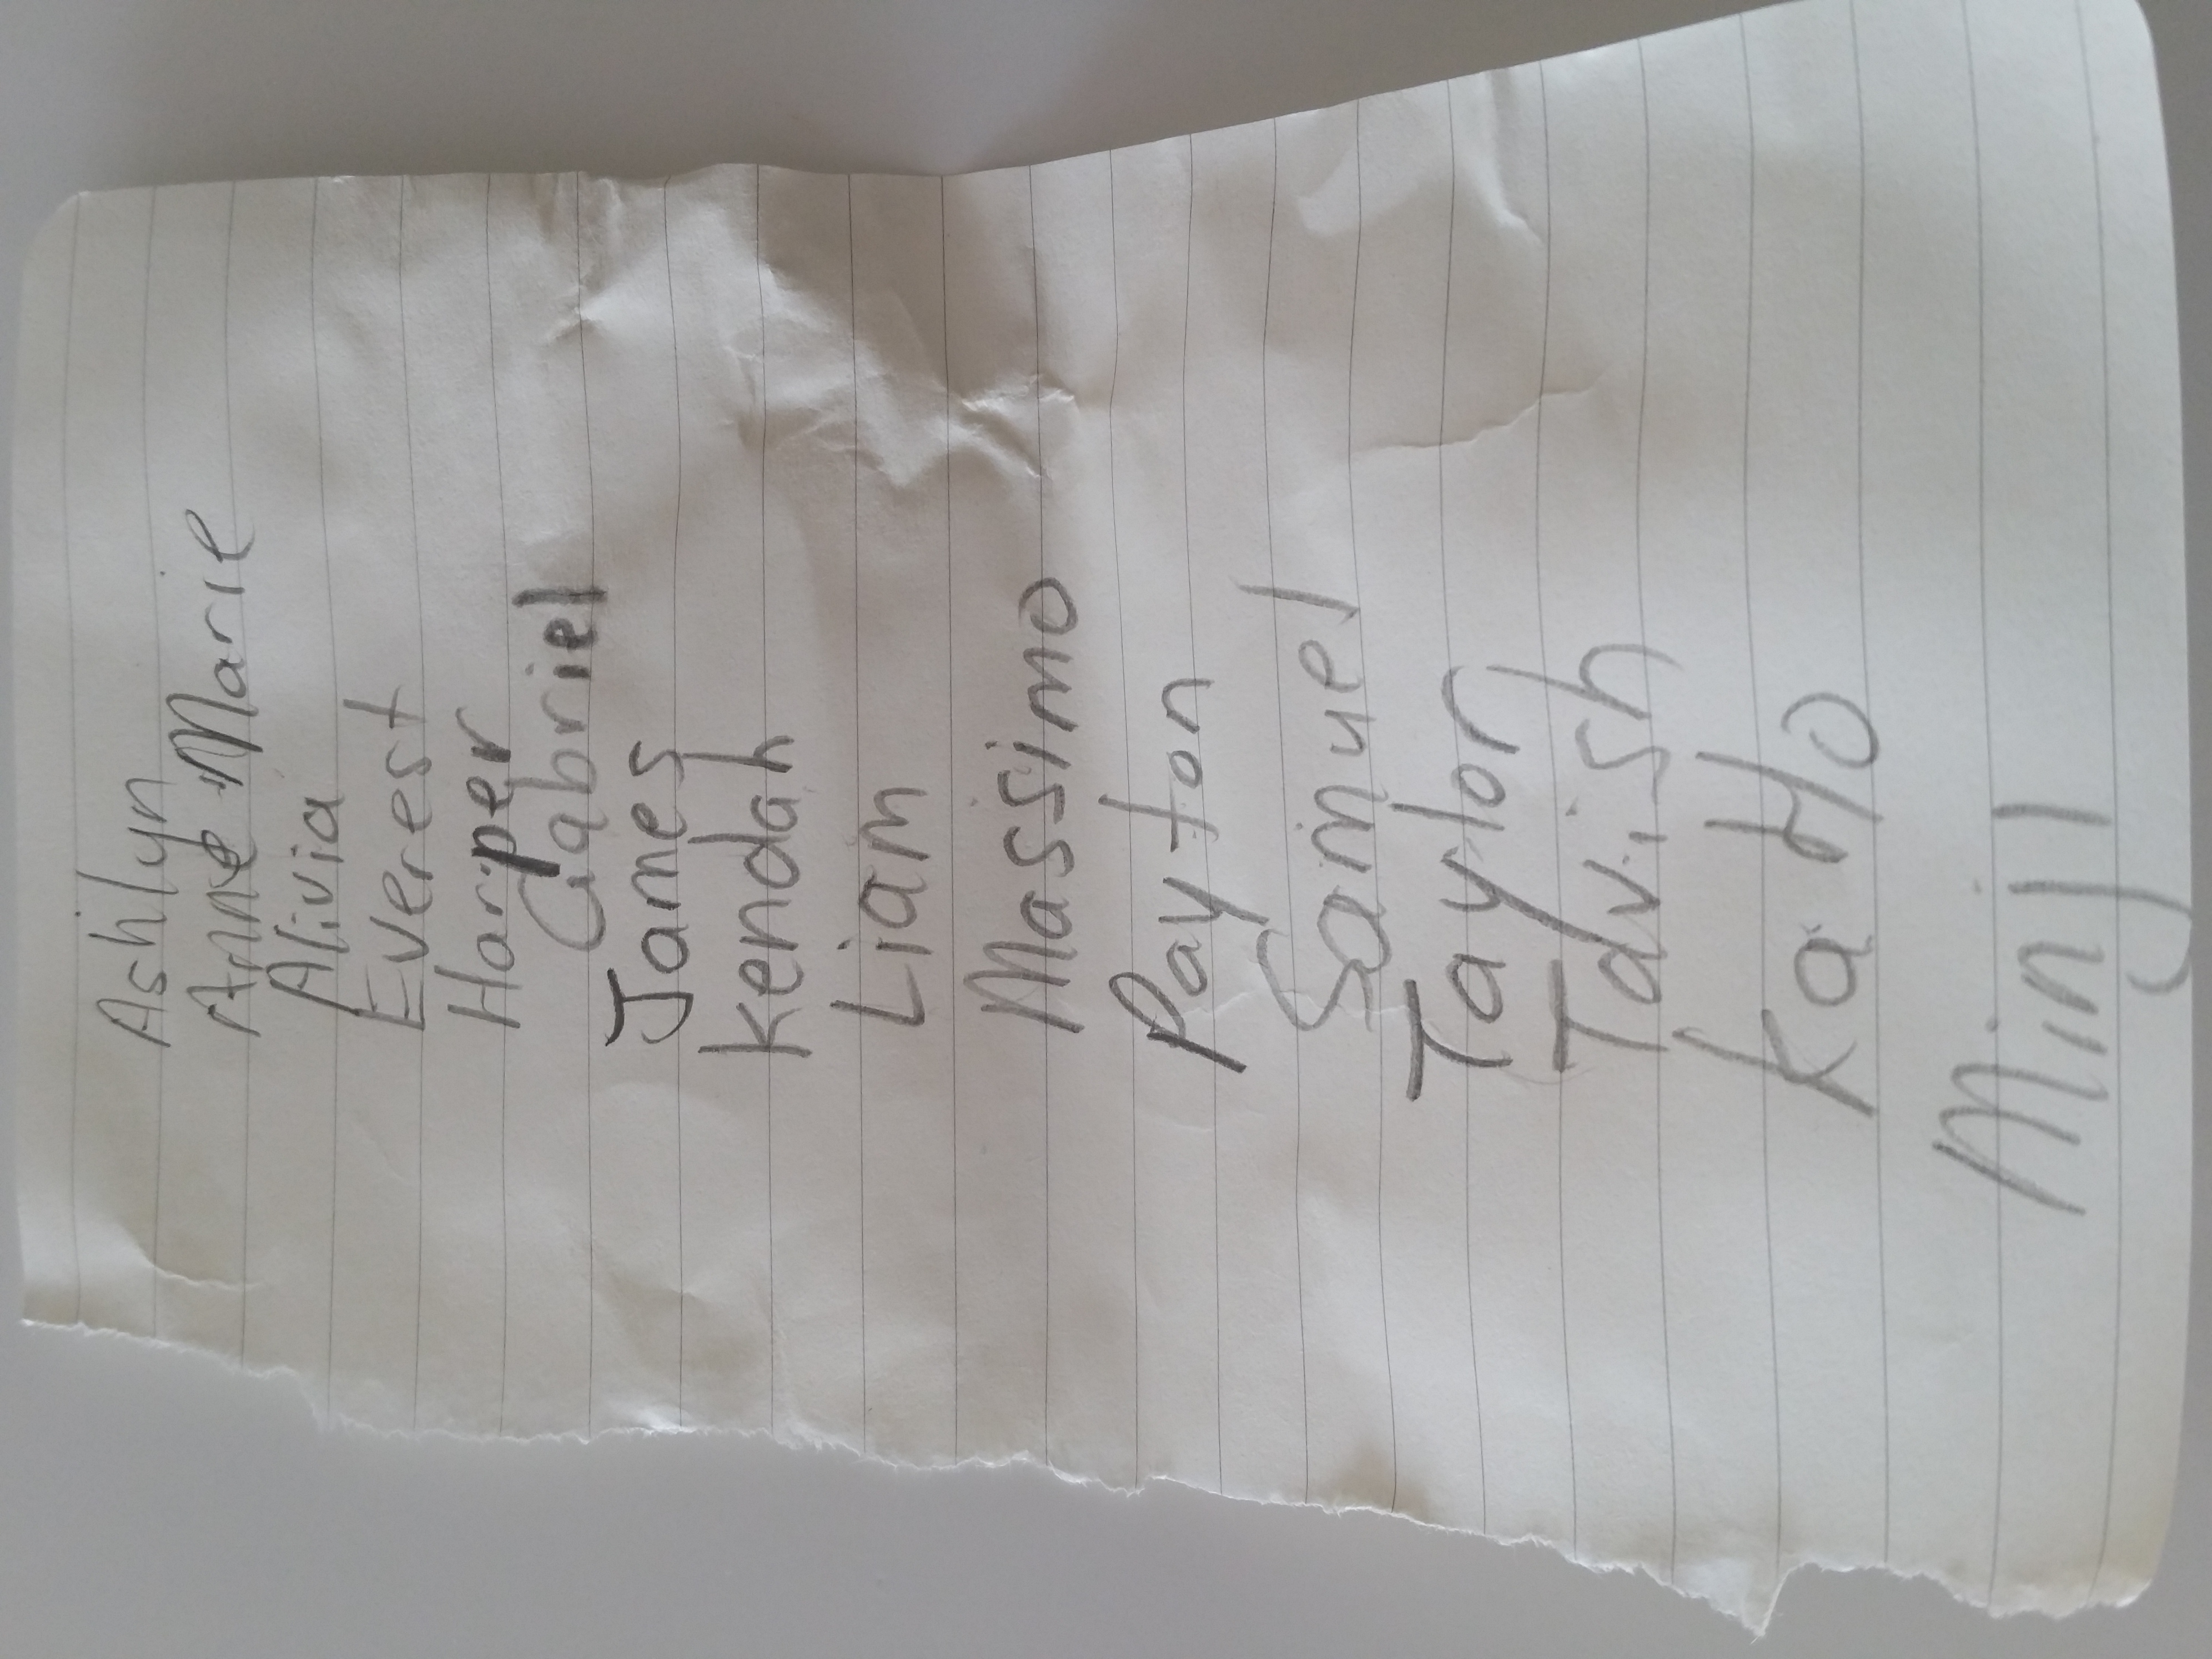 Ashlyn
Anne-Marie
Alivia
Everest
Harper
Gabriel
James
Kendah
Liam
Massimo
Payton
Samuel
Taylor
Tavish
Ka Ho
Minji